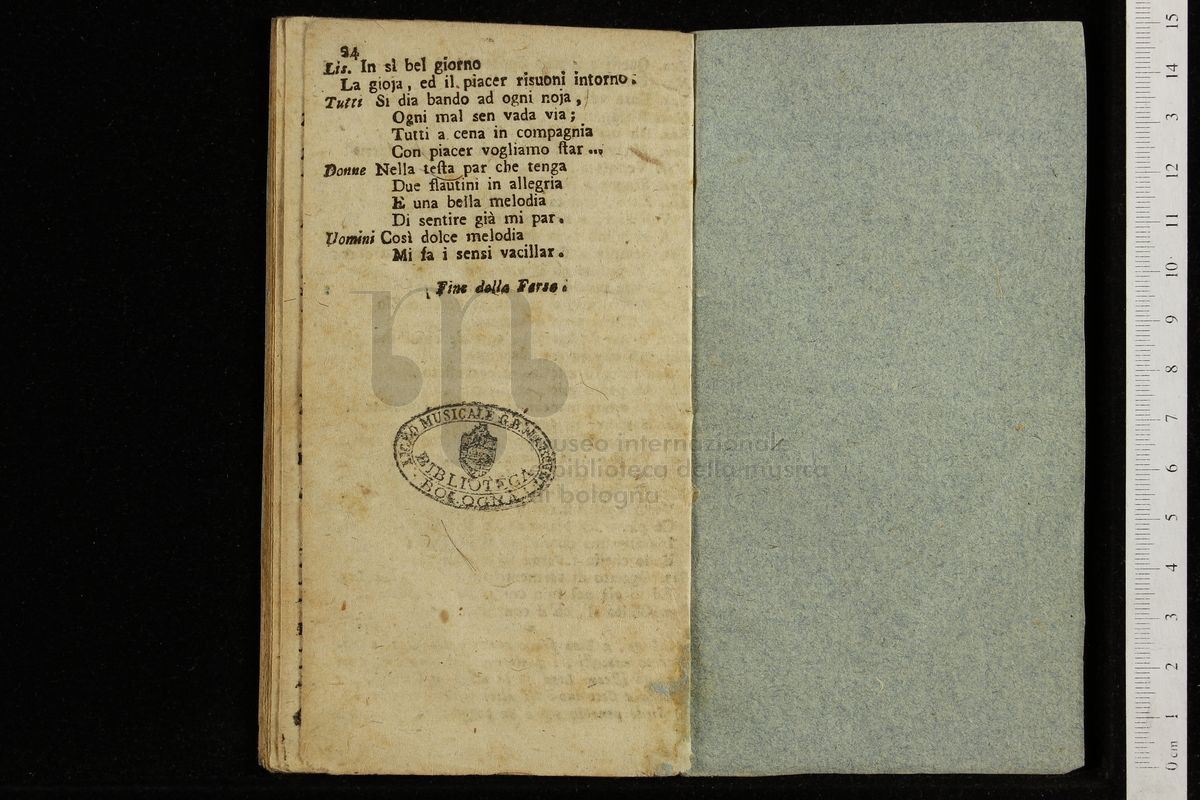 24
Lis. In sì bel giorno
La gioja, ed il piacer risuoni intorno.
Tutti Si dia bando ad ogni noja,
Ogni mal sen vada via;
Tutti a cena in compagnia
Con piacer vogliamo ſtar ...
Donne Nella teſta par che tenga
Due flautini in allegria
E una bella melodia
Di sentire già mi par.
Uomini Così dolce melodia
Mi fa i sensi vacillar.
Fine della Farsa.
LICEO MUSICALE G.B. MARTINI
BIBLIOTECA
BOLOGNA
museo internazionale
e biblioteca della musica
di bologna
0 cm 1 2 3 4 5 6 7 8 9 10 11 12 3 14 15